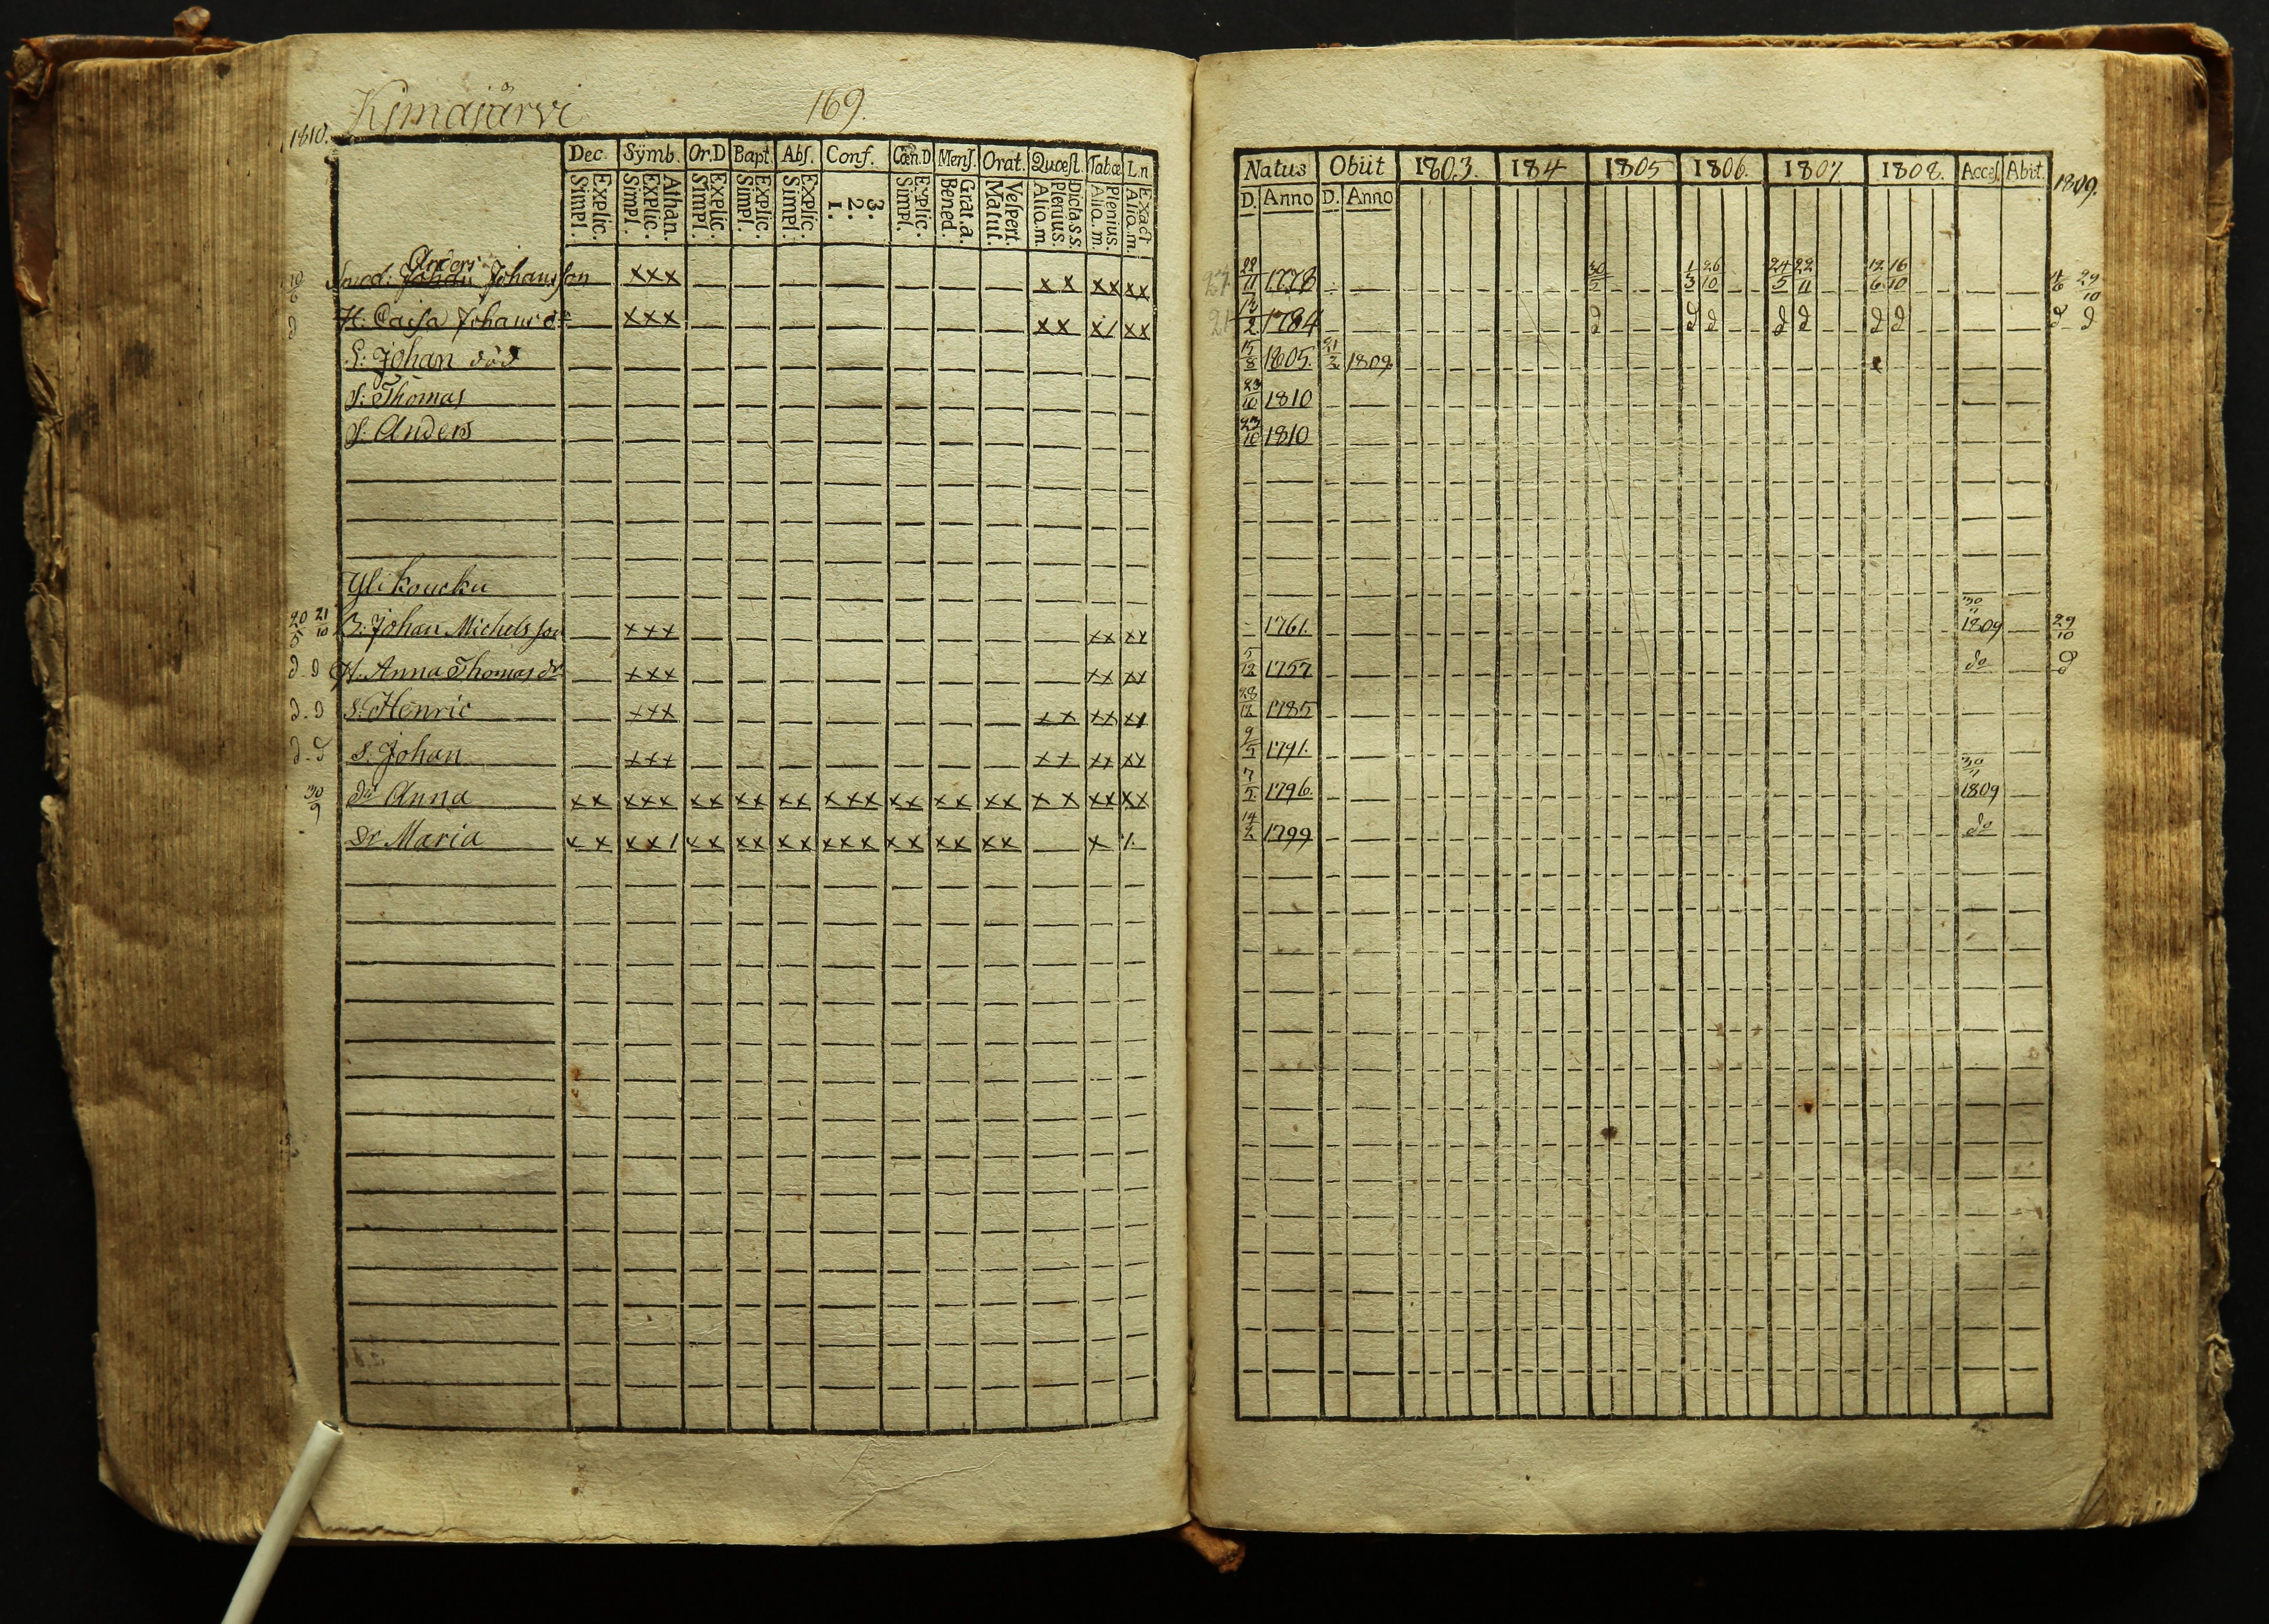 Kjmajärvi 169.
1810.
Dec. Sÿmb. Or.D Bapt. Abſ. Conf. Cœn.D Menſ. Orat. Quœſt. Tab.œ L.n
Explic. Simpl. Athan. Explic. Simpl. Explic. Simpl. Explic. Simpl. Explic. Simpl. 3. 2. 1. Explic. Simpl. Grat.a. Bened. Veſpert. Matut. Dicta.s.s. Plenius. Aliq.m. Plenius. Aliq.m. Exact Aliq.m.
Anders
10/6 Johan Johansson xxx xx xx xx
d H. Caisa Johansdr xxx xx x/ xx
S: Johan död
S: Thomas
S: Anders
Ylikoucku
20/5 21/10 B. Johan Michelsson xxx xx xx
d - d H. Anna Thomasdr xxx xx xx
d - d S: Henric xxx xx xx xx
d - d S. Johan xxx xx xx xx
30/9 dr Anna xx xxx xx xx xx xxx xx xx xx xx xx xx
Dr Maria xx xx/ xx xx xx xxx xx xx xx x
Natus Obiit 1803. 184 1805 1806. 1807 1808. Acceſ. Abit. 1809.
D. Anno D. Anno
1778 30/5 1/3 26/10 24/5 22/11 12/6 16/10 29/10
2 1784 d d d d d d d d - d
15/8 1805. 21/2 1809
23/10 1810
23/10 1810
1761. 30/11 1809 29/10
5/12 1757 do d
28/12 1785
9/5 1791.
7/5 1796. 1809
14/2 1799 do